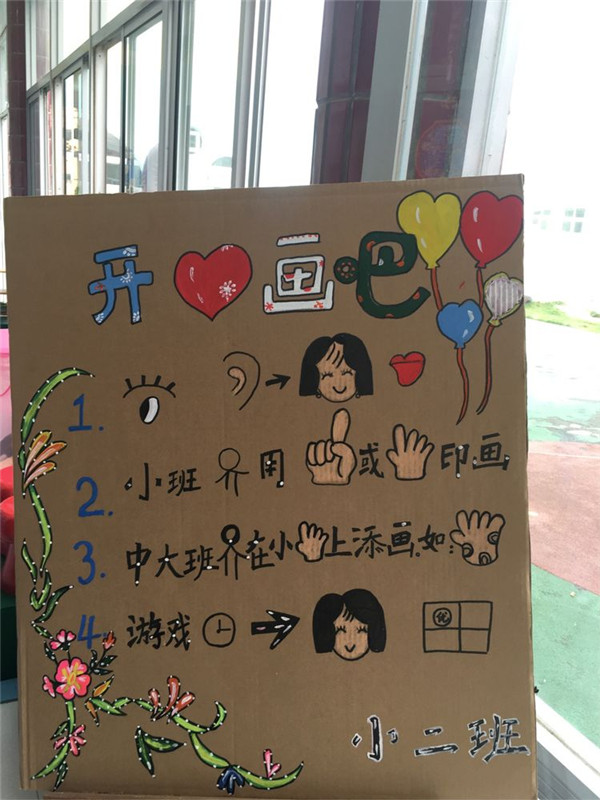 开画吧
1.
2. 小班用或印画
3. 中大班在小上添画.如:
4 游戏 优
小二班